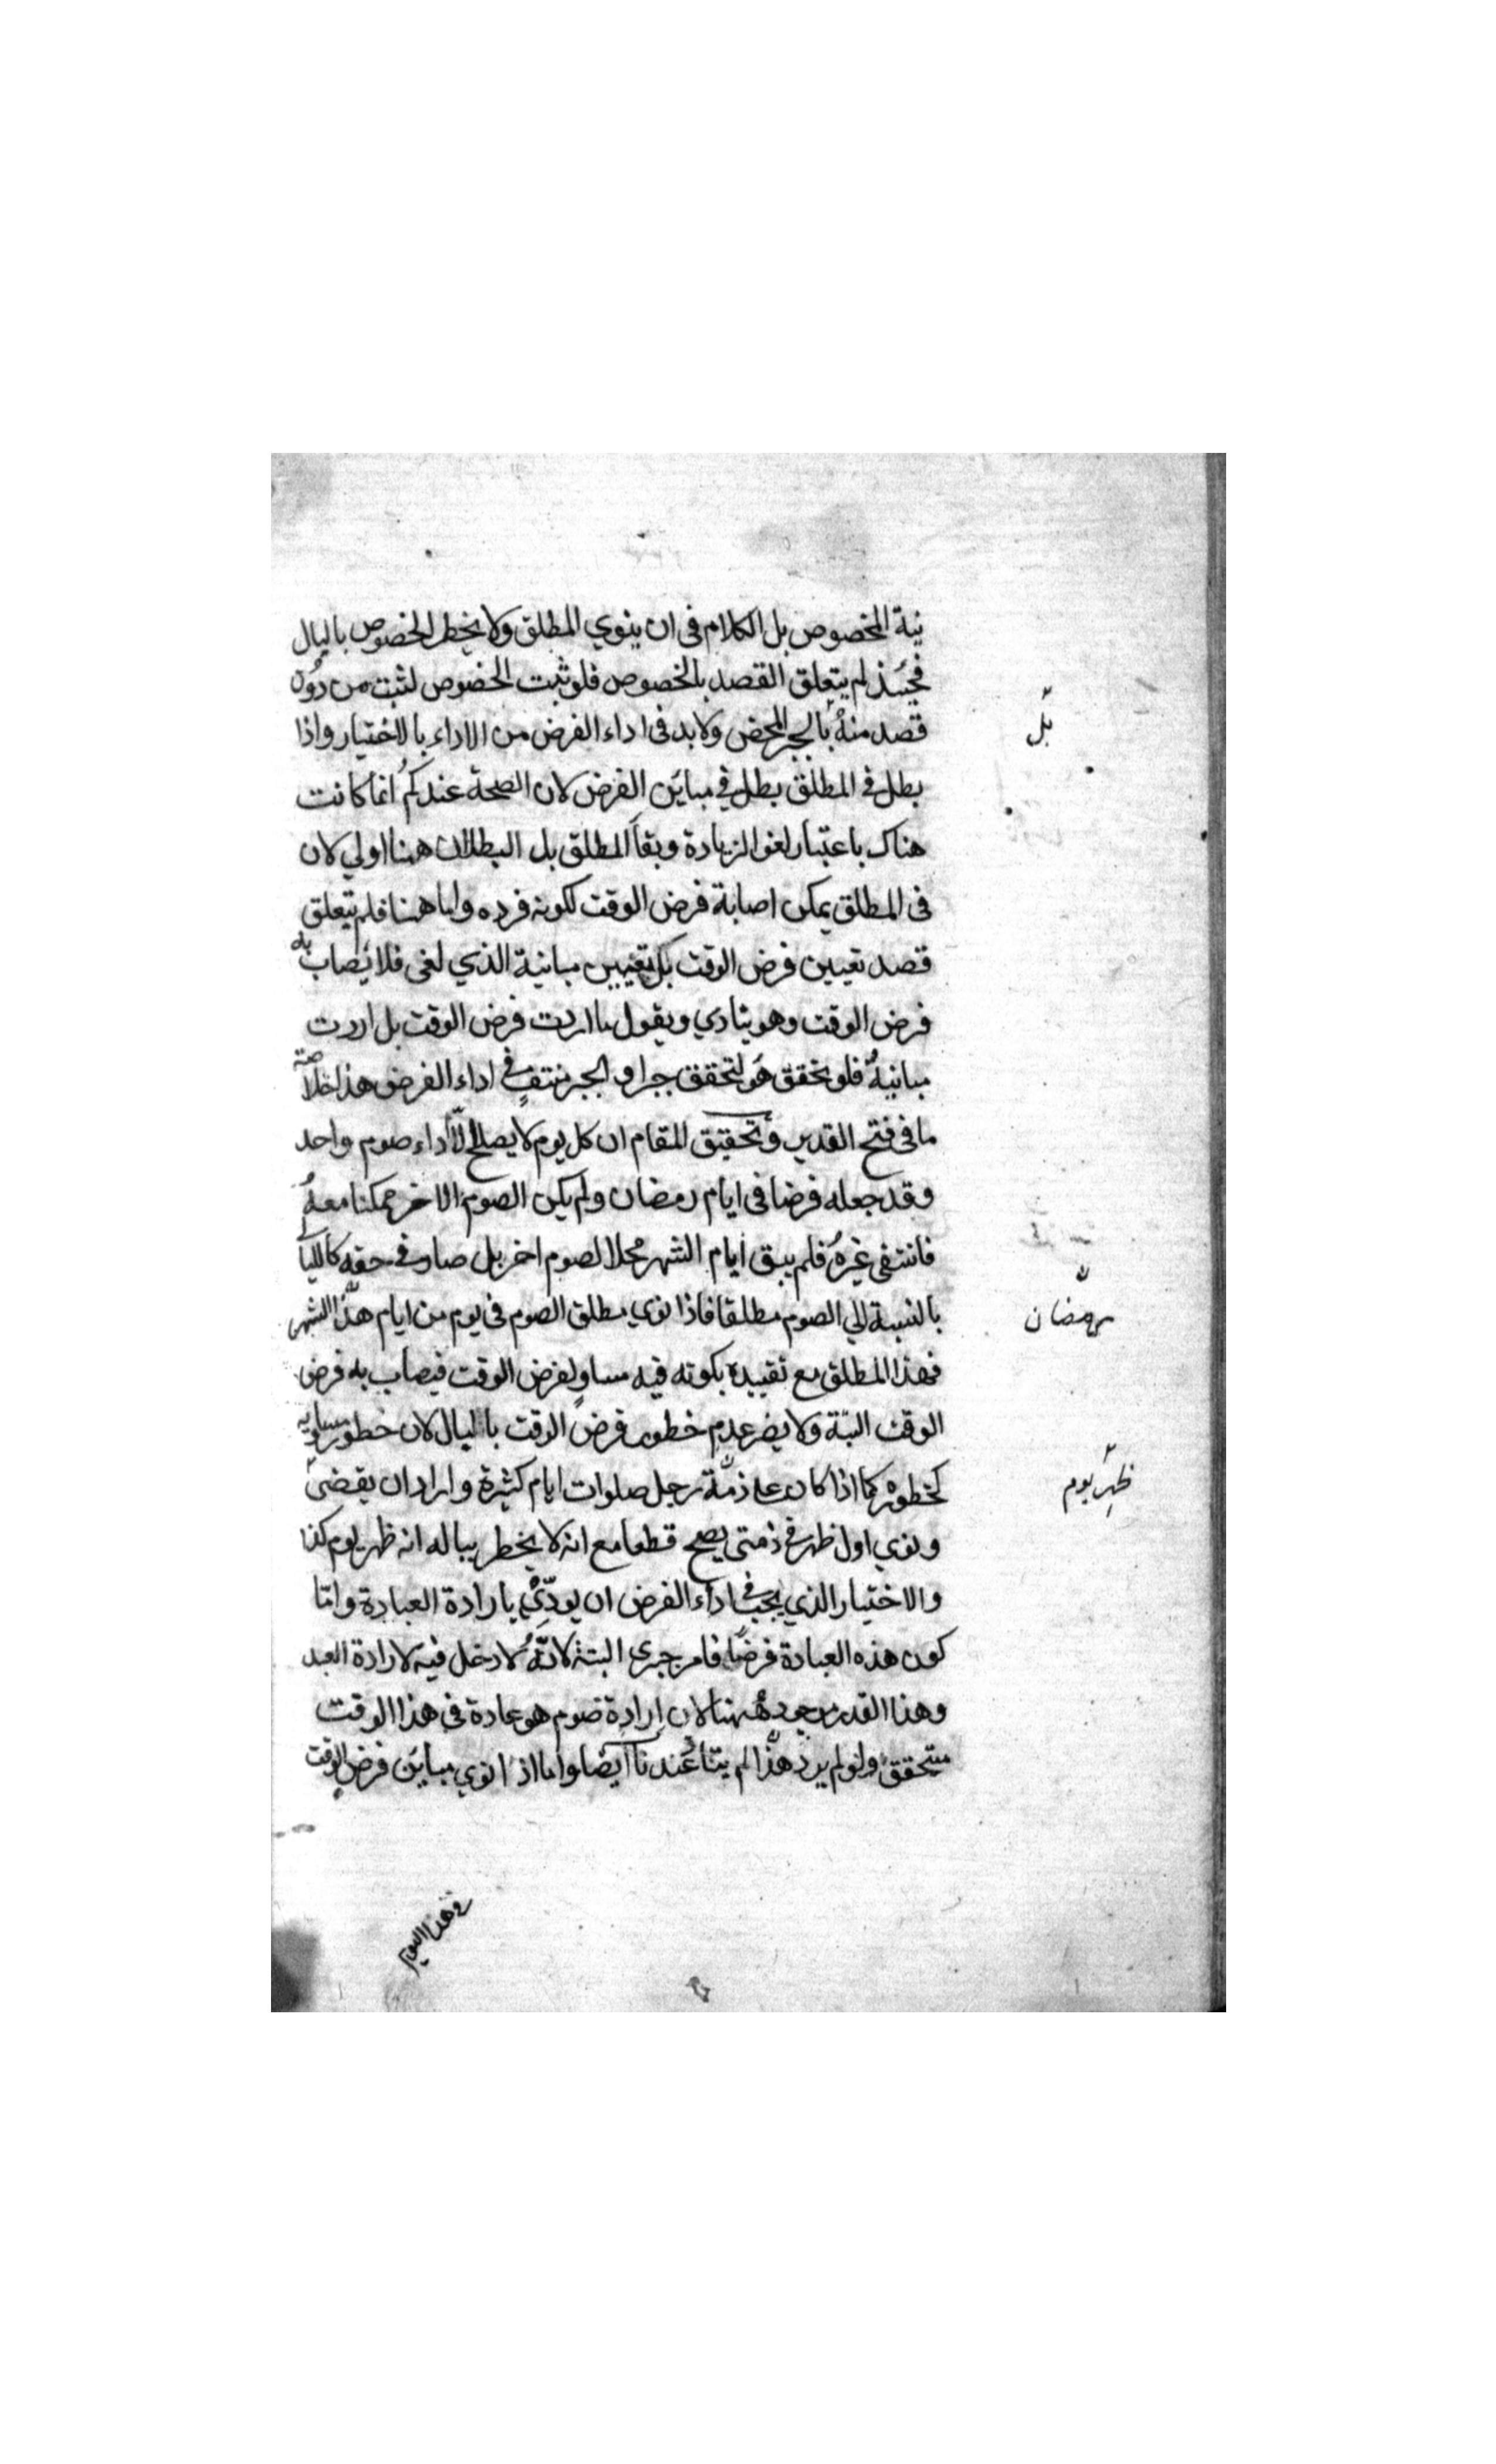 نية المخصوص بل الكلام في ان ينوي المطلق ولا يخطر الخصوص بالبال
فحينئذ لم يتعلق القصد بالخصوص فلو ثبت الخصوص لثبت من دون
قصد منه بالجبر المحض ولا بد في اداء الفرض من الاداء بالاختيار واذا
بل
بطل في المطلق بطل في مباين الفرض لان الصحة عندكم انما كانت
هناك باعتبار لغو الزيادة وبقا المطلق بل البطلان ههنا اولي لان
في المطلق يمكن اصابة فرض الوقت لكونه فرده واما ههنا فلم يتعلق
قصد تعيين فرض الوقت بل بتعيين مباينه الذي لغى فلا يصاب به
فرض الوقت وهو ينادي ويقول ما اردت فرض الوقت بل اردت
مباينه فلو تحقق هو لتحقق جبرا و الجبر منتف في اداء الفرض هذا خلاصة
ما في فتح القدير وتحقيق المقام ان كل يوم لا يصلح الا لاداء صوم واحد
وقد جعله فرضا في ايام رمضان ولم يكن الصوم الاخر ممكنا معه
فانتفى غيره فلم يبق ايام الشهر محلا لصوم اخر بل صار في حقه كالليالي
بالنسبة الي الصوم مطلقا فاذا نوي مطلق الصوم في يوم من ايام هذا الشهر
رمضان
فهذا المطلق مع تقييده بكونه فيه مساو لفرض الوقت فيصاب به فرض
الوقت البتة ولا يضر عدم خطور فرض الوقت بالبال لان خطور مساويه
كخطوره كما اذا كان على ذمة رجل صلوات ايام كثيرة واراد ان يقضى
ظهر يوم
ونوي اول ظهر في ذمتي يصح قطعا مع انه لا يخطر بباله انه ظهر يوم كذا
والاختيار الذي يجب في اداء الفرض ان يودي بارادة العبادة واما
كون هذه العبادة فرضا فامر جبري البتة لانه لا دخل فيه لارادة العبد
وهذا القدر موجود ههنا لان إرادة صوم هو عادة في هذا الوقت
متحقق ولو لم يرد هذا لم يتأ عندنا أيضا واما اذا نوي مباين فرض الوقت
في هذا اليوم